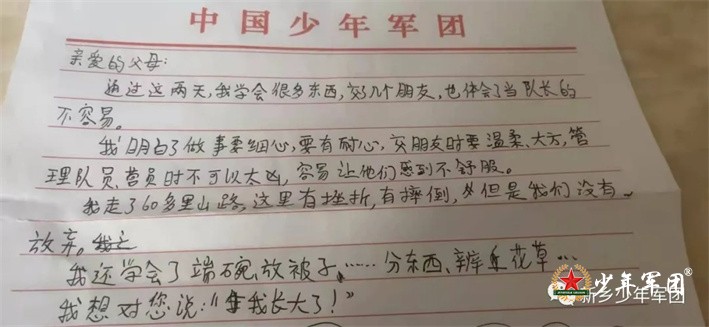 中国少年军团
亲爱的父母：
通过这两天，我学会很多东西，交几个朋友，也体会了当队长的
不容易。
我明白了做事要细心，要有耐心，交朋友时要温柔、大方，管
理队员、营员时不可以太凶，容易让他们感到不舒服。
我走了60多里山路，这里有挫折，有摔倒，但是我们没有
放弃。
我还学会了端碗、放被子、……分东西、辨 花草…
我想对您说：“我长大了！”
少年军团®
新乡少年军团